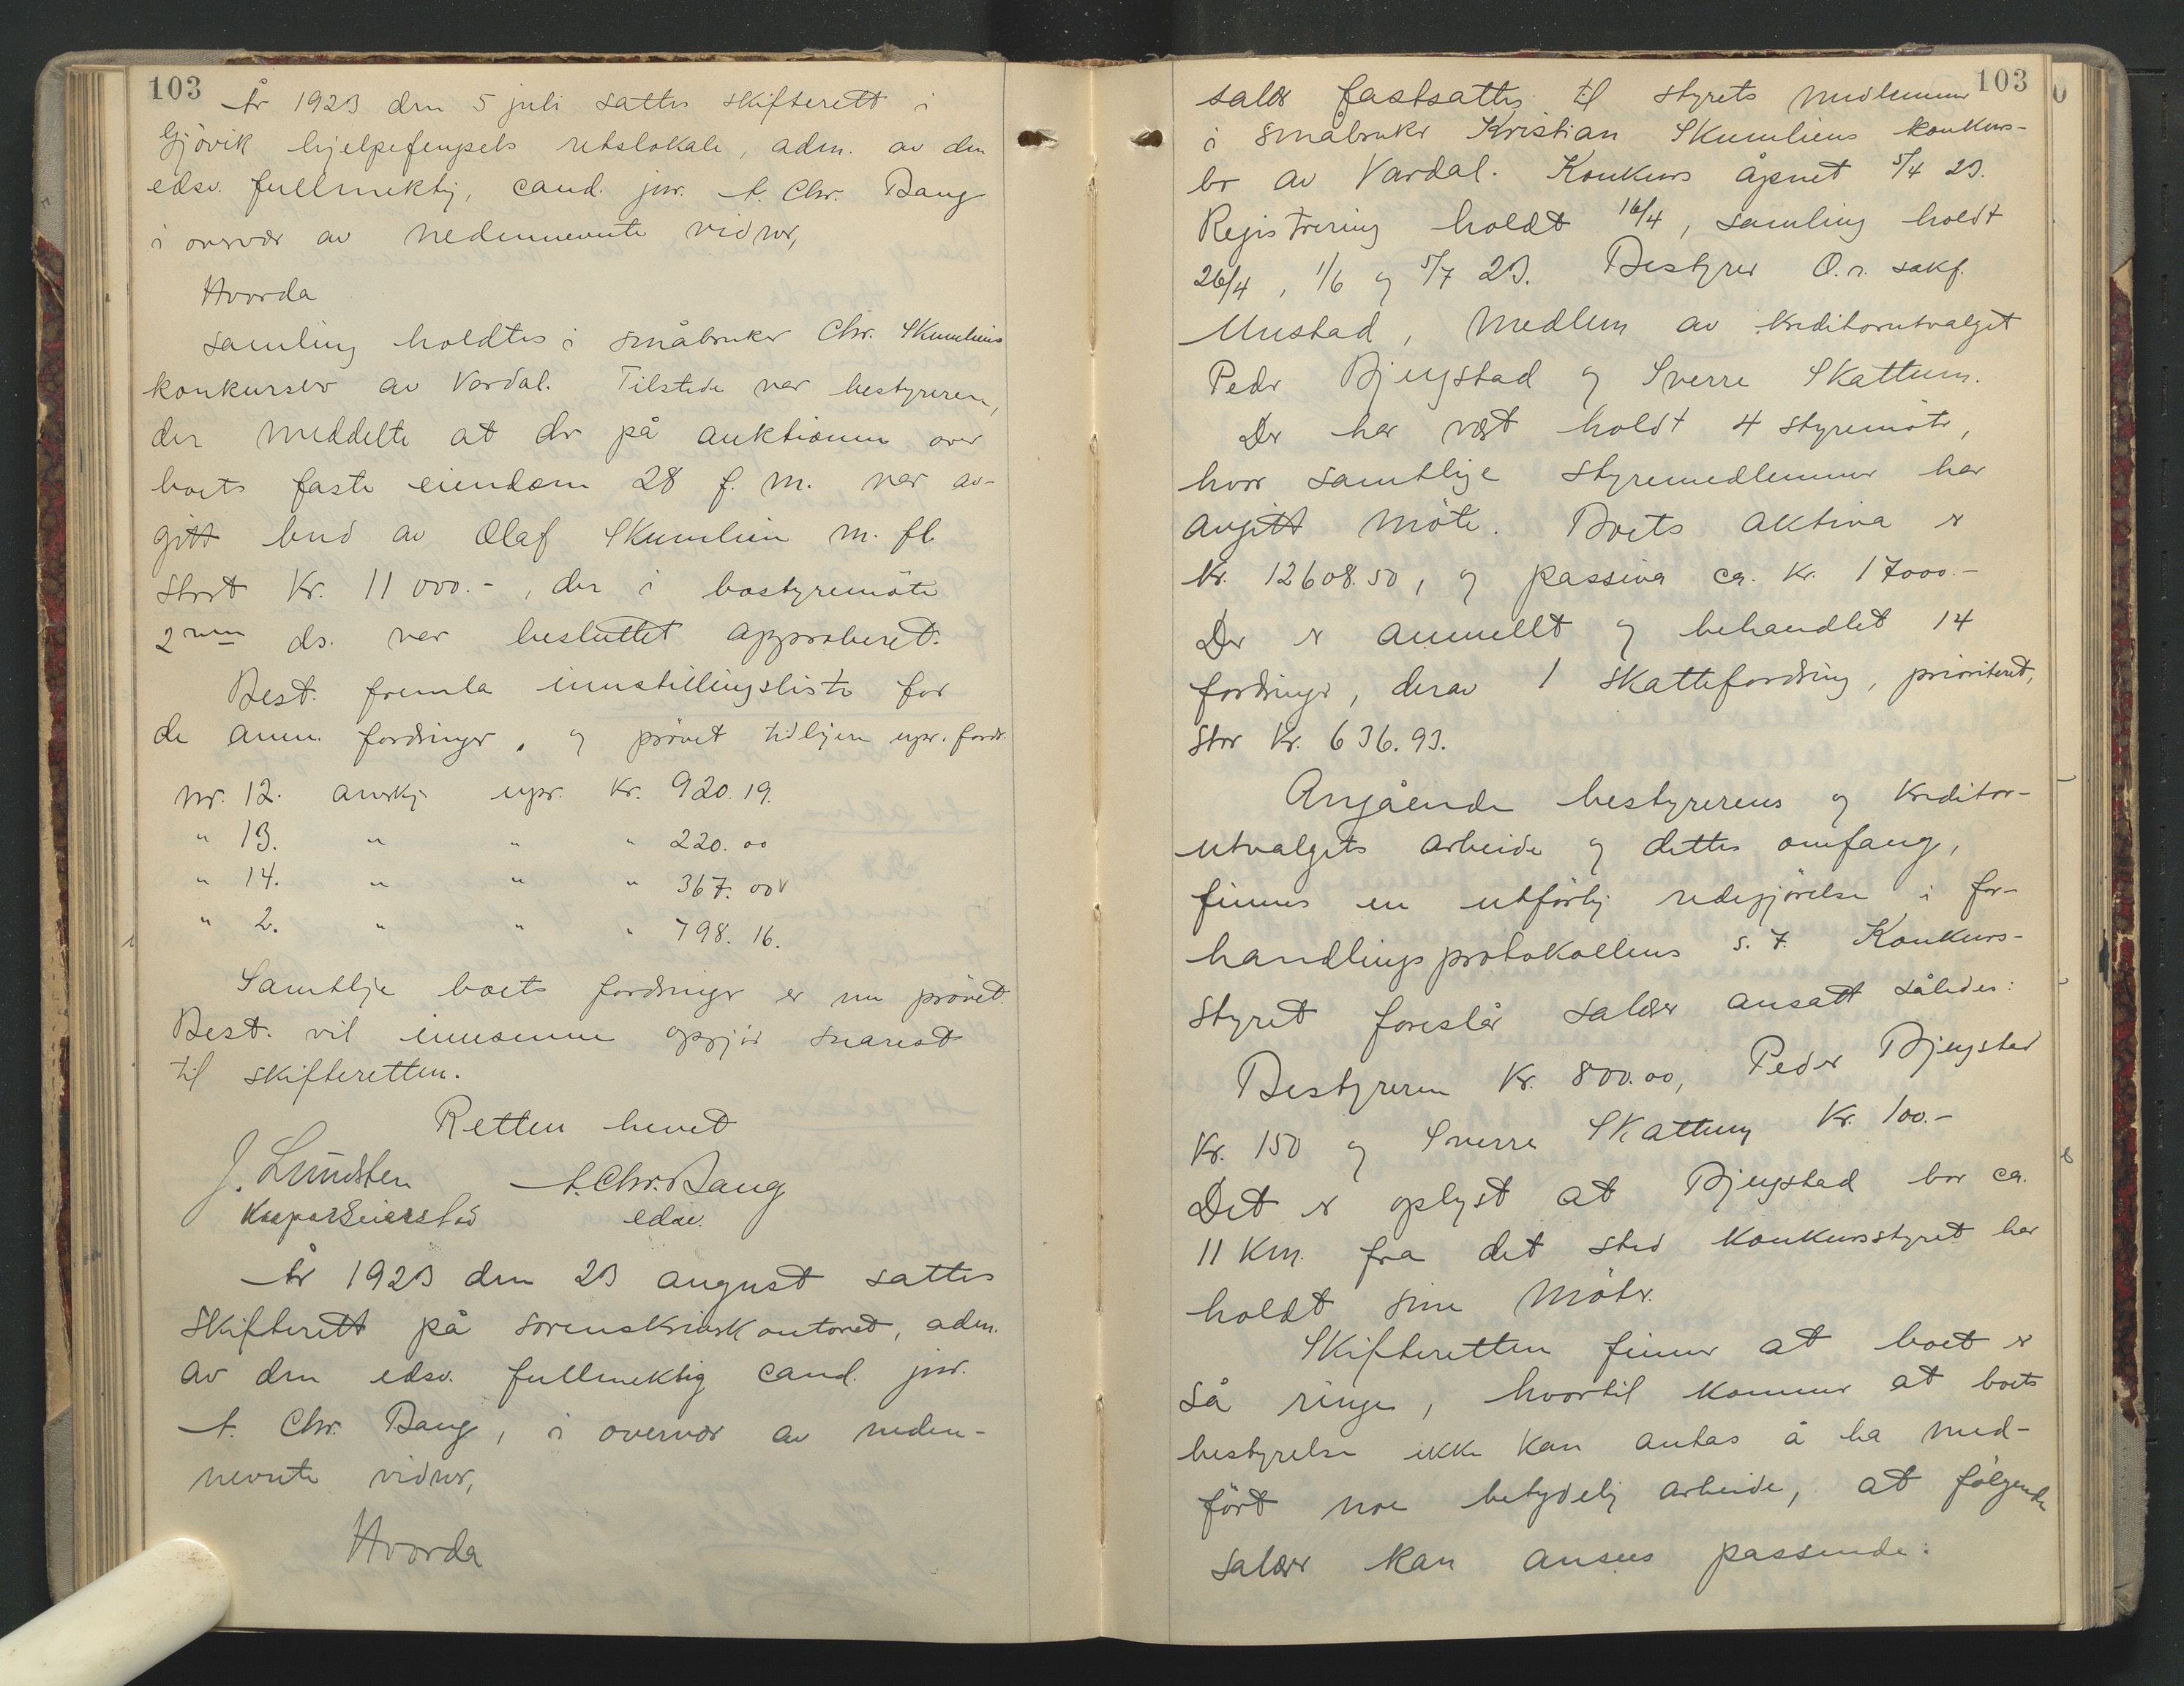 103
År 1923 den 5 juli sattes skifterett i
Gjøvik hjelpefengsels retslokale, adm. av den
edsv. fullmektig, cand. jur. A. Chr. Bang
i overvær av nedennevnte vidner,
Hvorda
samling holdtes i småbruker Chr. Skumliens
konkursbo av Vardal. Tilstede var bestyreren,
der meddelte at der på auktionen over
boets faste eiendom 28 f. m. var av-
gitt bud av Olaf Skumlien m. fl.
stort Kr. 11 000.-, der i bostyremöte
2nen ds. var besluttet approberet.
Best. fremla innstillingsliste for
de anm. fordringer, og prövet tidligere upr. fordr.
Nr. 12. anerkj. upr. Kr. 920.19.
" 13. " " " 220.00
" 14. " " " 367.00
" 2. " " " 798.16.
Samtlige boets fordringer er nu prövet.
Best. vil innsenne opgjör snarest
til skifteretten.
Retten hevet
J. Lundsten A. Chr. Bang
Kaspar Seierstad edsv.
År 1923 den 23 august sattes
skifterett på sorenskriverkontoret, adm.
av den edsv. fullmektig cand. jur.
A. Chr. Bang, i overvær av neden-
nevnte vidner,
Hvorda
103
salær fastsattes til styrets medlemmer
i småbruker Kristian Skumliens konkurs-
bo av Vardal. Konkurs åpnet 5/4 23.
Registrering holdt 16/4, samling holdt
26/4, 1/6 og 5/7 23. Bestyrer O.r. sakf.
Mustad, medlem av kreditorutvalget
Peder Bjugstad og Sverre Skattum.
Der har vært holdt 4 styremöter,
hvor samtlige styremedlemmer har
avgitt möte. Boets aktiva er
Kr. 12608.50, og passiva ca. Kr. 17000.-
Der er anmellt og behandlet 14
fordringer, derav 1 skattefordring, prioriteret,
stor Kr. 636.93.
Angående bestyrerens og kreditor-
utvalgets arbeide og dettes omfang,
finnes en utförlig redegjörelse i for-
handlingsprotokollens s. 7. Konkurs-
styret foreslår salær ansatt således:
Bestyreren Kr. 800.00, Peder Bjugstad
Kr. 150 og Sverre Skattum Kr. 100.-
Det er oplyst at Bjugstad bor ca.
11 Km. fra det sted konkursstyret har
holdt sine möter.
Skifteretten finner at boet er
så ringe, hvortil kommer at boets
bestyrelse ikke kan antas å ha med-
fört noe betydelig arbeide, at fölgende
salærer kan ansees passende: